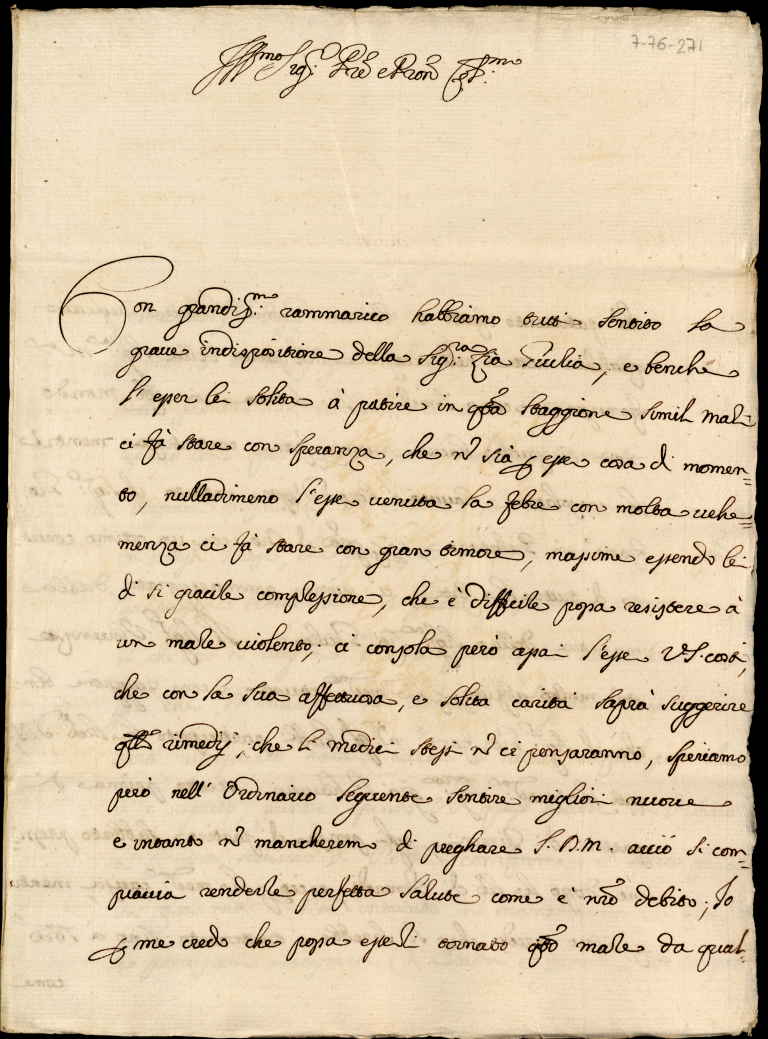 7-76-271
Ill.mo Sig.r P̃re e Pron̄ Col.mo
Con grandiss.mo rammarico habbiamo tutti sentito la
graue indispositione della Sig.ra Zia Giulia, e benche
l'esser lei solita à patire in q̃sta staggione simil male
ci fà stare con speranza, che n̄ sia ꝑ esser cosa di momen=
to, nulladimeno l'esser uenuta la febre con molta uehe=
menza ci fà stare con gran timore, massime essendo lei
di si gracile complessione, che è difficile possa resistere à
un male uiolento; ci consola però assai l'esser V.S. costì,
che con la sua affettuosa, e solita carità saprà suggerire
q̃lli rimedij, che li medici stessi n̄ ci pensaranno, speriamo
però nell'Ordinario seguente sentire migliori nuoue
e intanto n̄ mancheremo di preghare S.D.M. acciò si com=
piaccia renderle perfetta salute come è nr̄o debito; Io
ꝑ me credo che possa esserli tornato q̃sto male da qual=